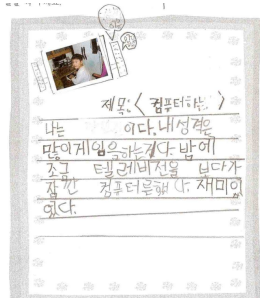 제목:< 컴퓨터하 >
나는 이다. 내성격은
많이게임을하는게다. 밤에
조금 텔레비전을 보다가
잠깐 컴퓨터를했다. 재미있
었다.